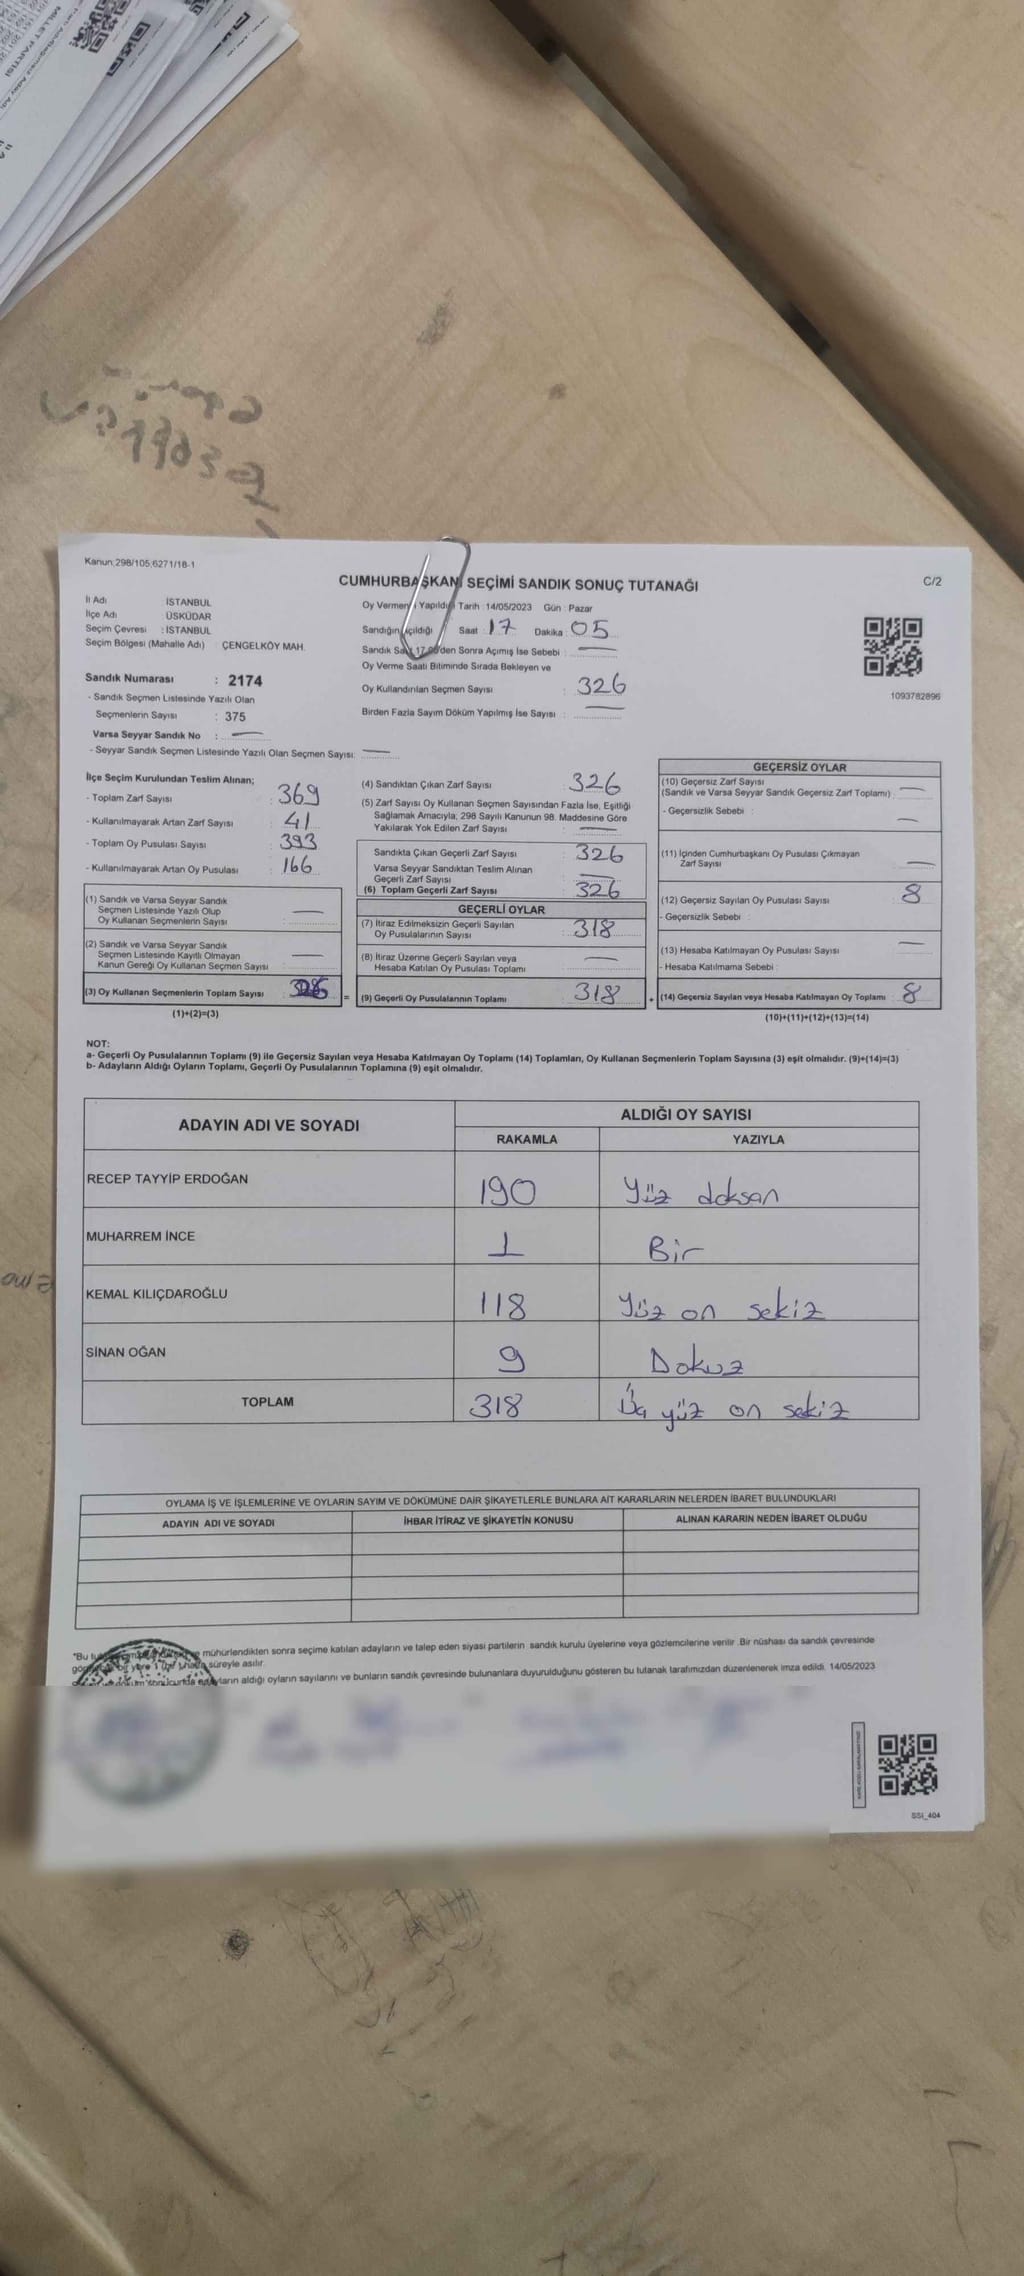 MİLLET PARTİSİ
Kanun;298/105,6271/18-1
CUMHURBAŞKANI SEÇİMİ SANDIK SONUÇ TUTANAĞI
C/2
İl Adı İSTANBUL
İlçe Adı ÜSKÜDAR
Seçim Çevresi : İSTANBUL
Seçim Bölgesi (Mahalle Adı) : ÇENGELKÖY MAH.
Sandık Numarası : 2174
- Sandık Seçmen Listesinde Yazılı Olan
Seçmenlerin Sayısı : 375
Varsa Seyyar Sandık No :
- Seyyar Sandık Seçmen Listesinde Yazılı Olan Seçmen Sayısı:
Oy Vermenin Yapıldığı Tarih :14/05/2023 Gün : Pazar
Sandığın Açıldığı Saat : 17 Dakika : 05
Sandık Saat 17.00'den Sonra Açımış İse Sebebi :
Oy Verme Saati Bitiminde Sırada Bekleyen ve
Oy Kullandırılan Seçmen Sayısı : 326
Birden Fazla Sayım Döküm Yapılmış İse Sayısı :
1093782896
İlçe Seçim Kurulundan Teslim Alınan;
- Toplam Zarf Sayısı : 369
- Kullanılmayarak Artan Zarf Sayısı : 41
- Toplam Oy Pusulası Sayısı : 393
- Kullanılmayarak Artan Oy Pusulası : 166
(1) Sandık ve Varsa Seyyar Sandık
Seçmen Listesinde Yazılı Olup
Oy Kullanan Seçmenlerin Sayısı :
(2) Sandık ve Varsa Seyyar Sandık
Seçmen Listesinde Kayıtlı Olmayan
Kanun Gereği Oy Kullanan Seçmen Sayısı :
(3) Oy Kullanan Seçmenlerin Toplam Sayısı : 326 =
(1)+(2)=(3)
(4) Sandıktan Çıkan Zarf Sayısı : 326
(5) Zarf Sayısı Oy Kullanan Seçmen Sayısından Fazla İse, Eşitliği
Sağlamak Amacıyla; 298 Sayılı Kanunun 98. Maddesine Göre
Yakılarak Yok Edilen Zarf Sayısı :
Sandıkta Çıkan Geçerli Zarf Sayısı : 326
Varsa Seyyar Sandıktan Teslim Alınan
Geçerli Zarf Sayısı :
(6) Toplam Geçerli Zarf Sayısı : 326
GEÇERLİ OYLAR
(7) İtiraz Edilmeksizin Geçerli Sayılan
Oy Pusulalarının Sayısı : 318
(8) İtiraz Üzerine Geçerli Sayılan veya
Hesaba Katılan Oy Pusulası Toplamı :
(9) Geçerli Oy Pusulalarının Toplamı : 318 +
GEÇERSİZ OYLAR
(10) Geçersiz Zarf Sayısı
(Sandık ve Varsa Seyyar Sandık Geçersiz Zarf Toplamı) :
- Geçersizlik Sebebi :
(11) İçinden Cumhurbaşkanı Oy Pusulası Çıkmayan
Zarf Sayısı :
(12) Geçersiz Sayılan Oy Pusulası Sayısı : 8
- Geçersizlik Sebebi :
(13) Hesaba Katılmayan Oy Pusulası Sayısı :
- Hesaba Katılmama Sebebi :
(14) Geçersiz Sayılan veya Hesaba Katılmayan Oy Toplamı : 8
(10)+(11)+(12)+(13)=(14)
NOT:
a- Geçerli Oy Pusulalarının Toplamı (9) ile Geçersiz Sayılan veya Hesaba Katılmayan Oy Toplamı (14) Toplamları, Oy Kullanan Seçmenlerin Toplam Sayısına (3) eşit olmalıdır. (9)+(14)=(3)
b- Adayların Aldığı Oyların Toplamı, Geçerli Oy Pusulalarının Toplamına (9) eşit olmalıdır.
ADAYIN ADI VE SOYADI ALDIĞI OY SAYISI
RAKAMLA YAZIYLA
RECEP TAYYİP ERDOĞAN 190 Yüz doksan
MUHARREM İNCE 1 Bir
KEMAL KILIÇDAROĞLU 118 Yüz on sekiz
SİNAN OĞAN 9 Dokuz
TOPLAM 318 Üç yüz on sekiz
OYLAMA İŞ VE İŞLEMLERİNE VE OYLARIN SAYIM VE DÖKÜMÜNE DAİR ŞİKAYETLERLE BUNLARA AİT KARARLARIN NELERDEN İBARET BULUNDUKLARI
ADAYIN ADI VE SOYADI İHBAR İTİRAZ VE ŞİKAYETİN KONUSU ALINAN KARARIN NEDEN İBARET OLDUĞU
*Bu mühürlendikten sonra seçime katılan adayların ve talep eden siyasi partilerin sandık kurulu üyelerine veya gözlemcilerine verilir. Bir nüshası da sandık çevresinde
süreyle asılır.
adayların aldığı oyların sayılarını ve bunların sandık çevresinde bulunanlara duyurulduğunu gösteren bu tutanak tarafımızdan düzenlenerek imza edildi. 14/05/2023
SSİ_404